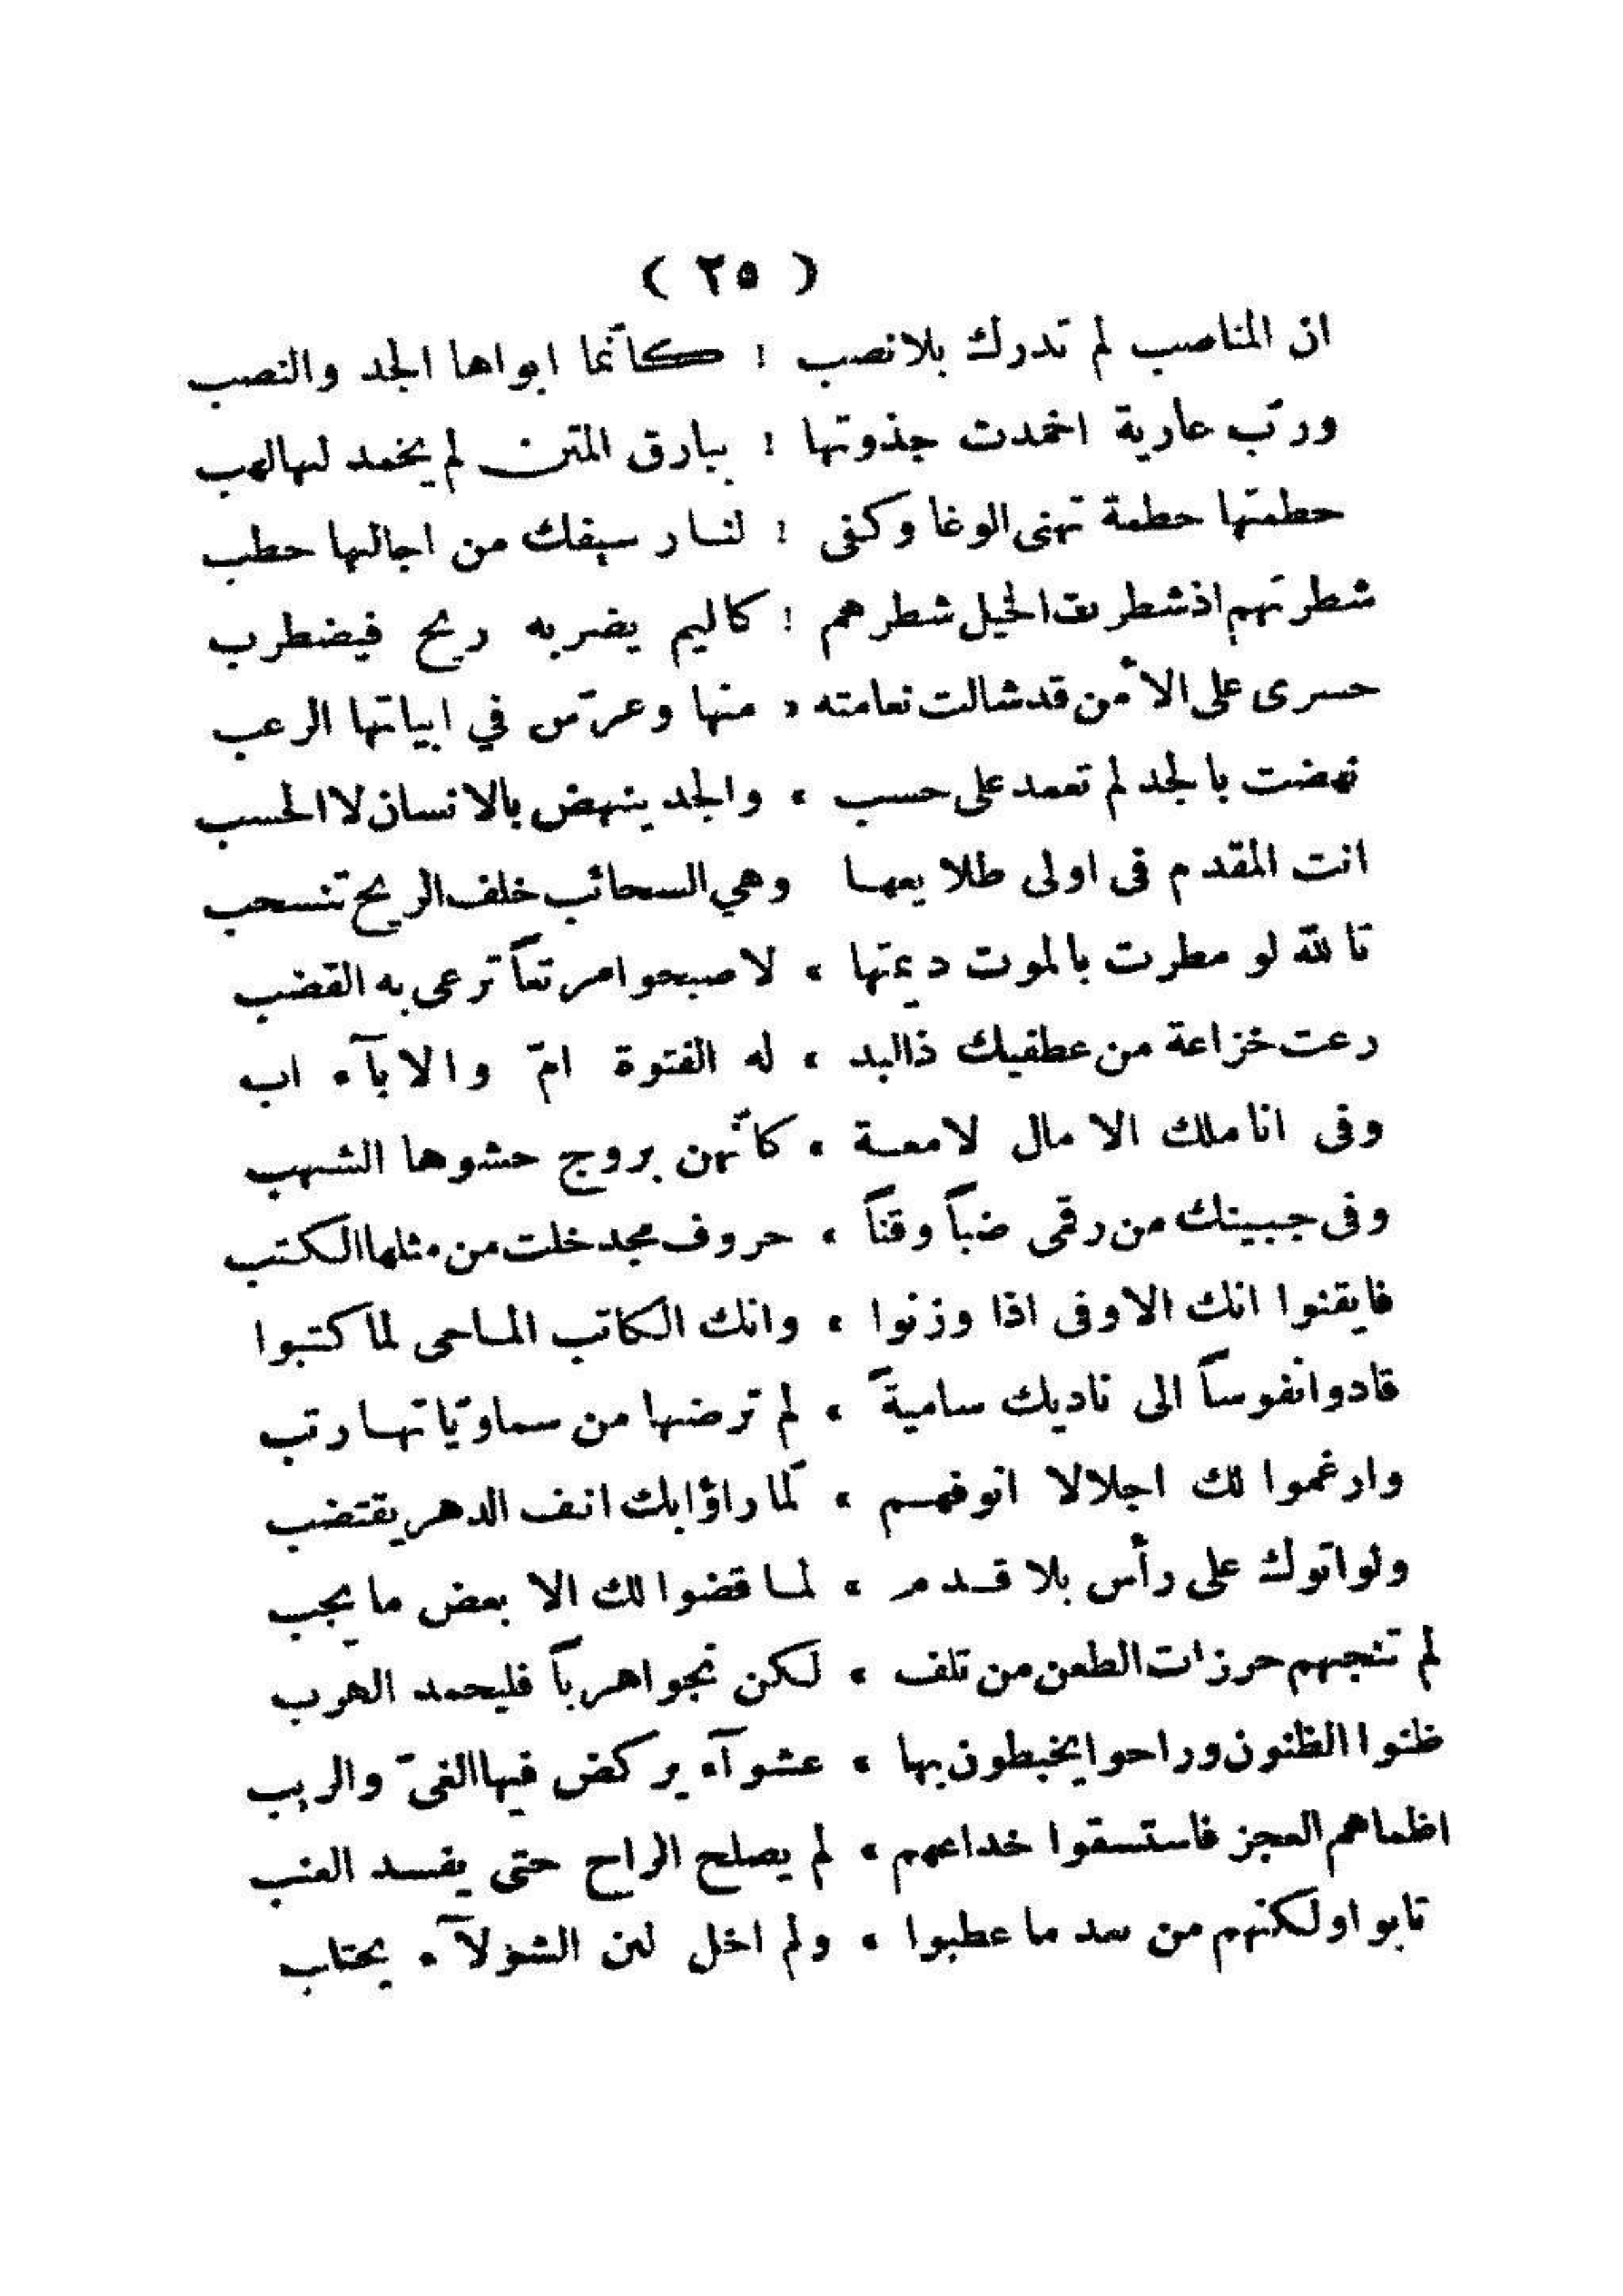 ( ٢٥ )
ان المناصب لم تدرك بلا نصب ؛ كأنما ابواها الجد والنصب
وربّ عارية اخمدت جذوتها ؛ ببارق المتن لم يخمد لها لهب
حطمتها حطمة تهنى الوغا وكفى ؛ لنار سيفك من اجالها حطب
شطرتهم اذ شطرت الخيل شطرهم ؛ كاليم يضربه ريح فيضطرب
حسرى على الأمن قد شالت نعامته ، منها وعرّس في ابياتها الرعب
نهضت بالجد لم تعمد على حسب ، والجد ينهض بالانسان لا الحسب
انت المقدم فى اولى طلايعها وهي السحائب خلف الريح تنسحب
تالله لو مطرت بالموت ديمتها ، لاصبحوا مرتعاً ترعى به القضب
رعت خزاعة من عطفيك ذا لبد ، له الفتوة امّ والابآء اب
وفى اناملك الامال لامعة ، كأنهن بروج حشوها الشهب
وفى جبينك من رقمى ضباً وقناً ، حروف مجد خلت من مثلها الكتب
فايقنوا انك الاوفى اذا وزنوا ، وانك الكاتب الماحى لما كتبوا
قادوا نفوساً الى ناديك ساميةً ، لم ترضها من سماويّاتها رتب
وارغموا لك اجلالا انوفهم ، لما راؤا بك انف الدهر يقتضب
ولو اتوك على رأس بلا قدم ، لما قضوا لك الا بعض ما يجب
لم تنجهم حرزات الطعن من تلف ، لكن نجوا هرباً فليحمد الهرب
ظنوا الظنون وراحوا يخبطون بها ، عشوآء يركض فيها الغىّ والريب
اظماهم العجز فاستسقوا خداعهم ، لم يصلح الراح حتى يفسد العنب
تابوا ولكنهم من بعد ما عطبوا ، ولم اخل لبن الشولآء يحتلب